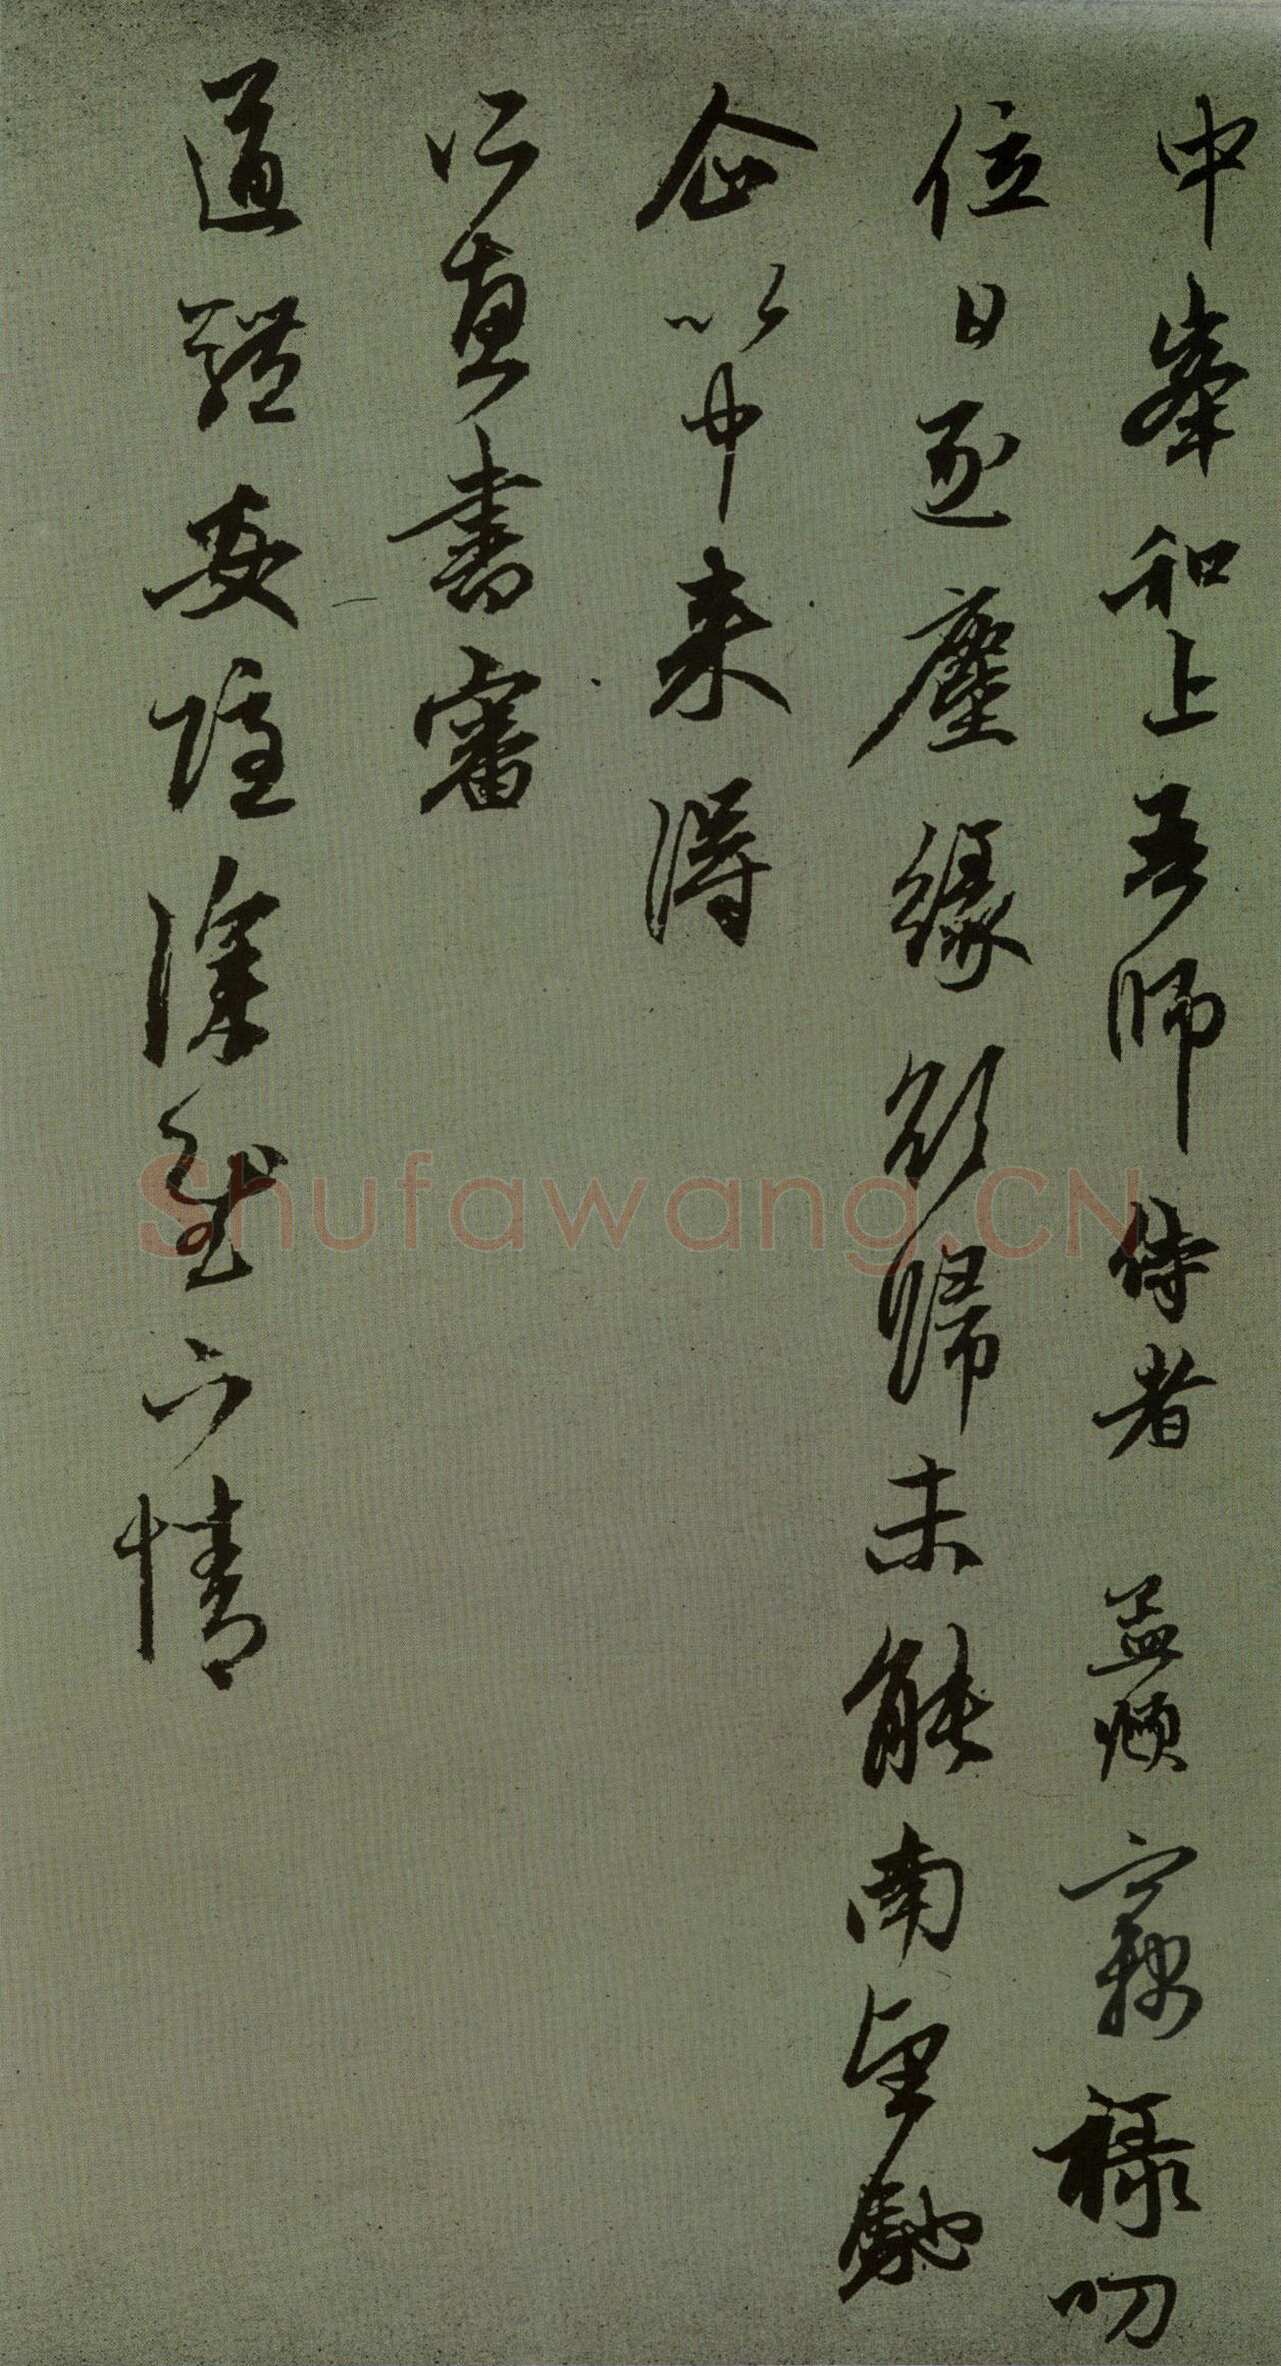 中峯和上吾師侍者孟頫竊祿叨
位日逐塵緣欲歸未能南望馳
企以中來得
所惠書審
道體安隱深慰下情
Shufawang.CN